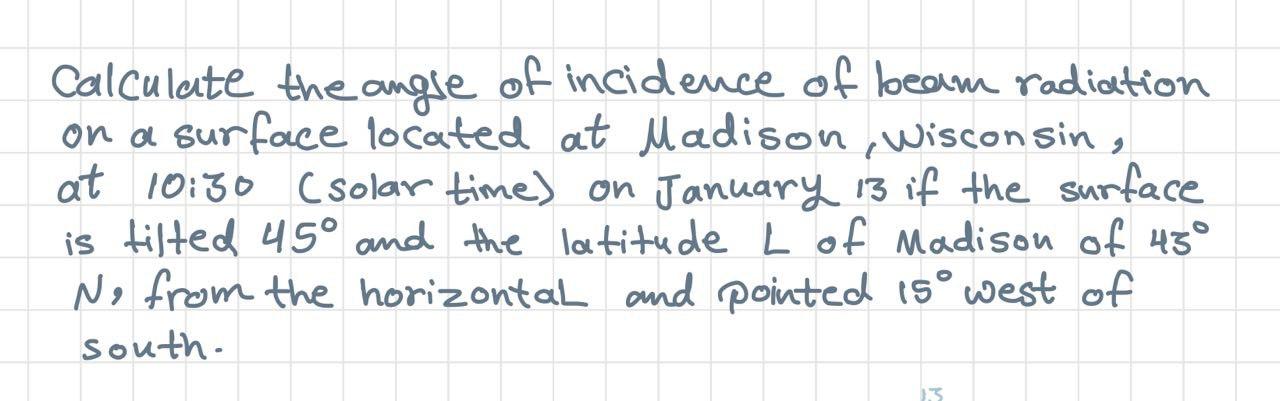 Calculate the angle of incidence of beam radiation
on a surface located at Madison, Wisconsin,
at 10:30 (solar time) on January 13 if the surface
is tilted 45° and the latitude L of Madison of 43°
N, from the horizontal and pointed 15° west of
south.
13